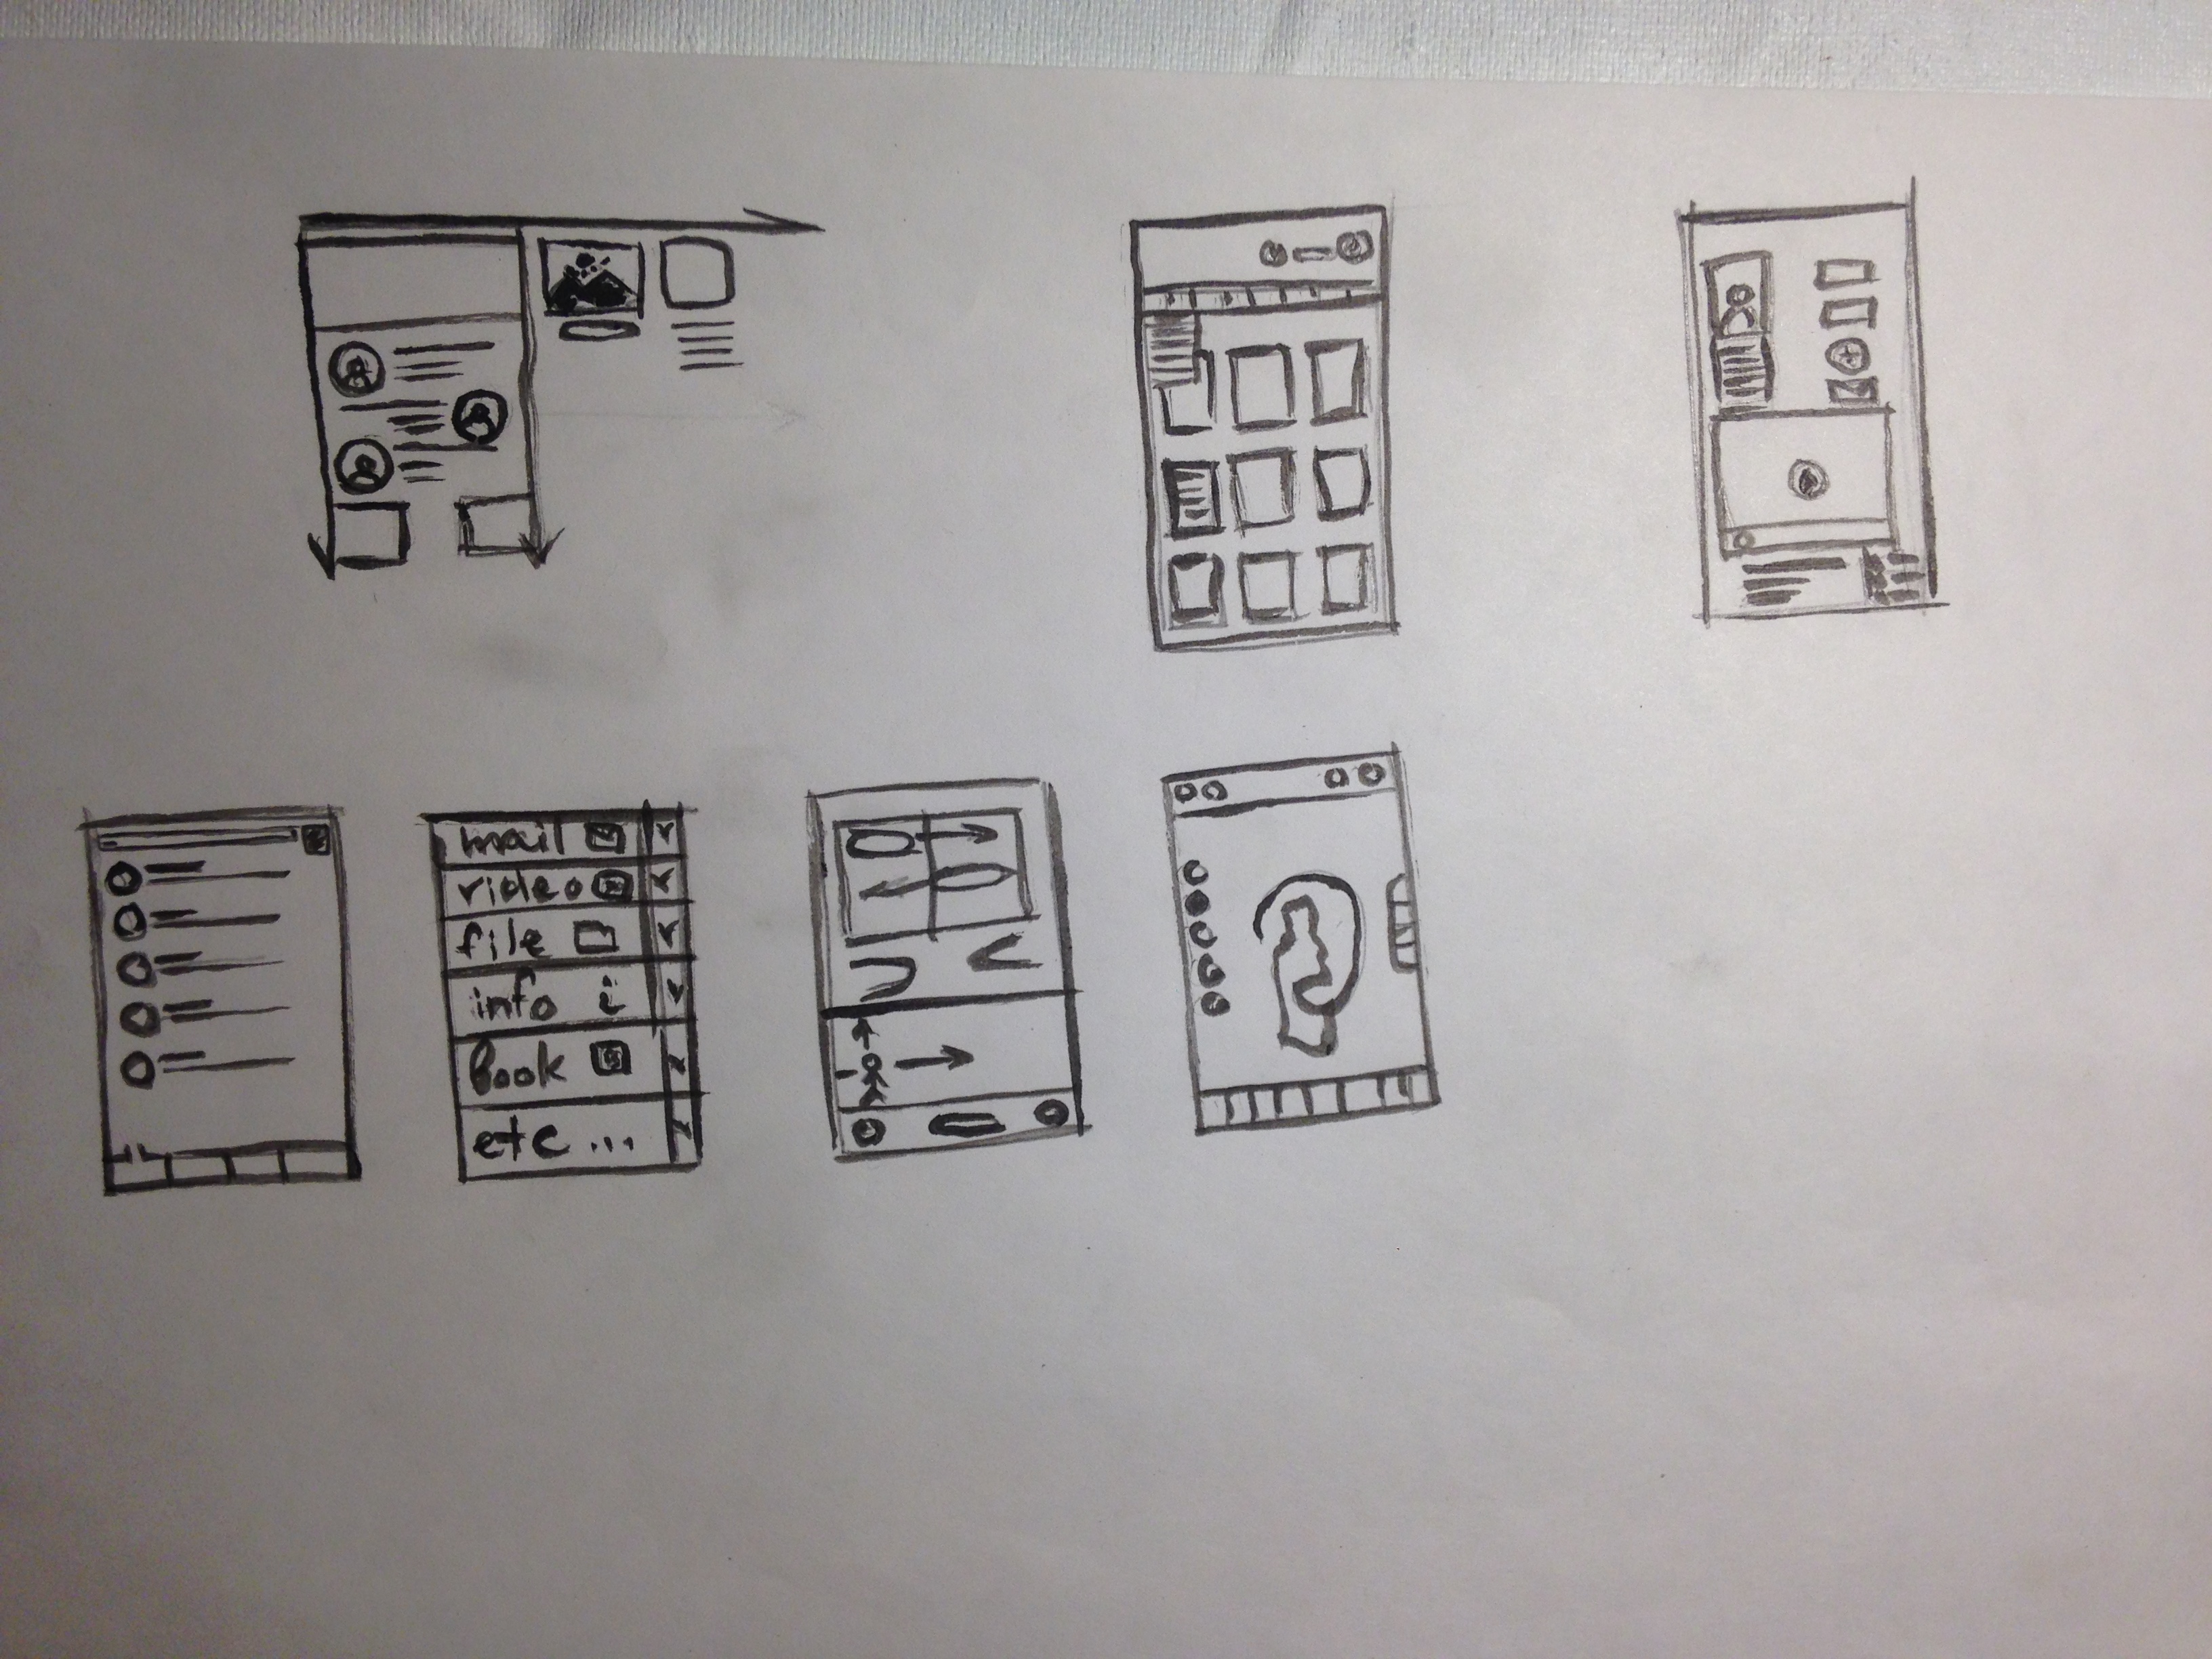 mail
video
file
info i
book
etc ...